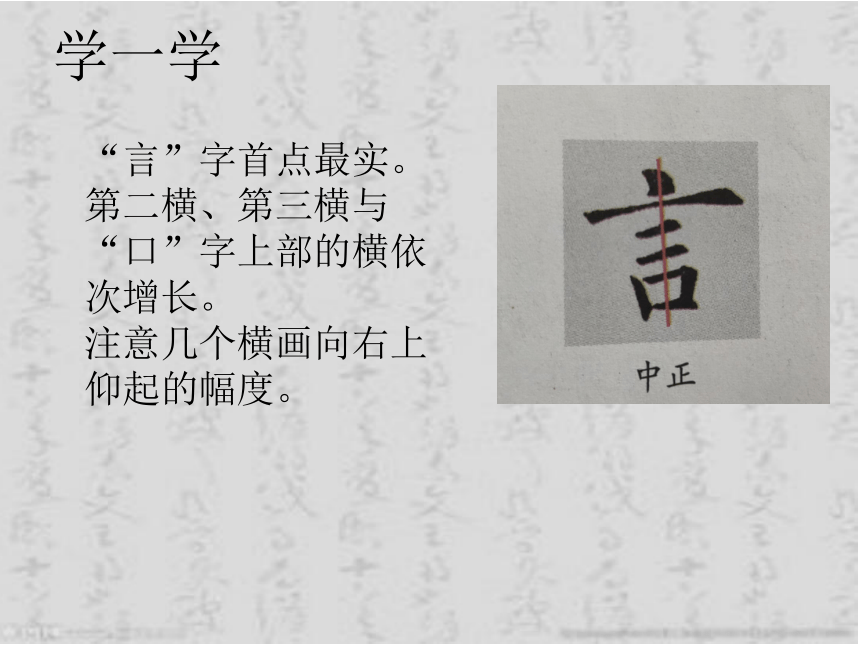 学一学
“言”字首点最实。
第二横、第三横与
“口”字上部的横依
次增长。
注意几个横画向右上
仰起的幅度。
言
中正